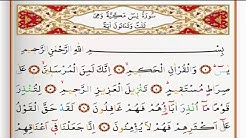 سُورَةُ يٰسٓ مَكِّيَّةٌ وَهِيَ
ثَلٰثٌ وَثَمَانُونَ اٰيَةً
بِسْمِ اللّٰهِ الرَّحْمٰنِ الرَّحِيمِ
يٰسٓ وَالْقُرْاٰنِ الْحَكِيمِ اِنَّكَ لَمِنَ الْمُرْسَلِينَ عَلٰى
صِرَاطٍ مُسْتَقِيمٍ تَنْزِيلَ الْعَزِيزِ الرَّحِيمِ لِتُنْذِرَ
قَوْمًا مَٓا اُنْذِرَ اٰبَٓاؤُهُمْ فَهُمْ غَافِلُونَ لَقَدْ حَقَّ الْقَوْلُ
عَلٰٓى اَكْثَرِهِمْ فَهُمْ لَا يُؤْمِنُونَ اِنَّا جَعَلْنَا فِٓي اَعْنَاقِهِمْ